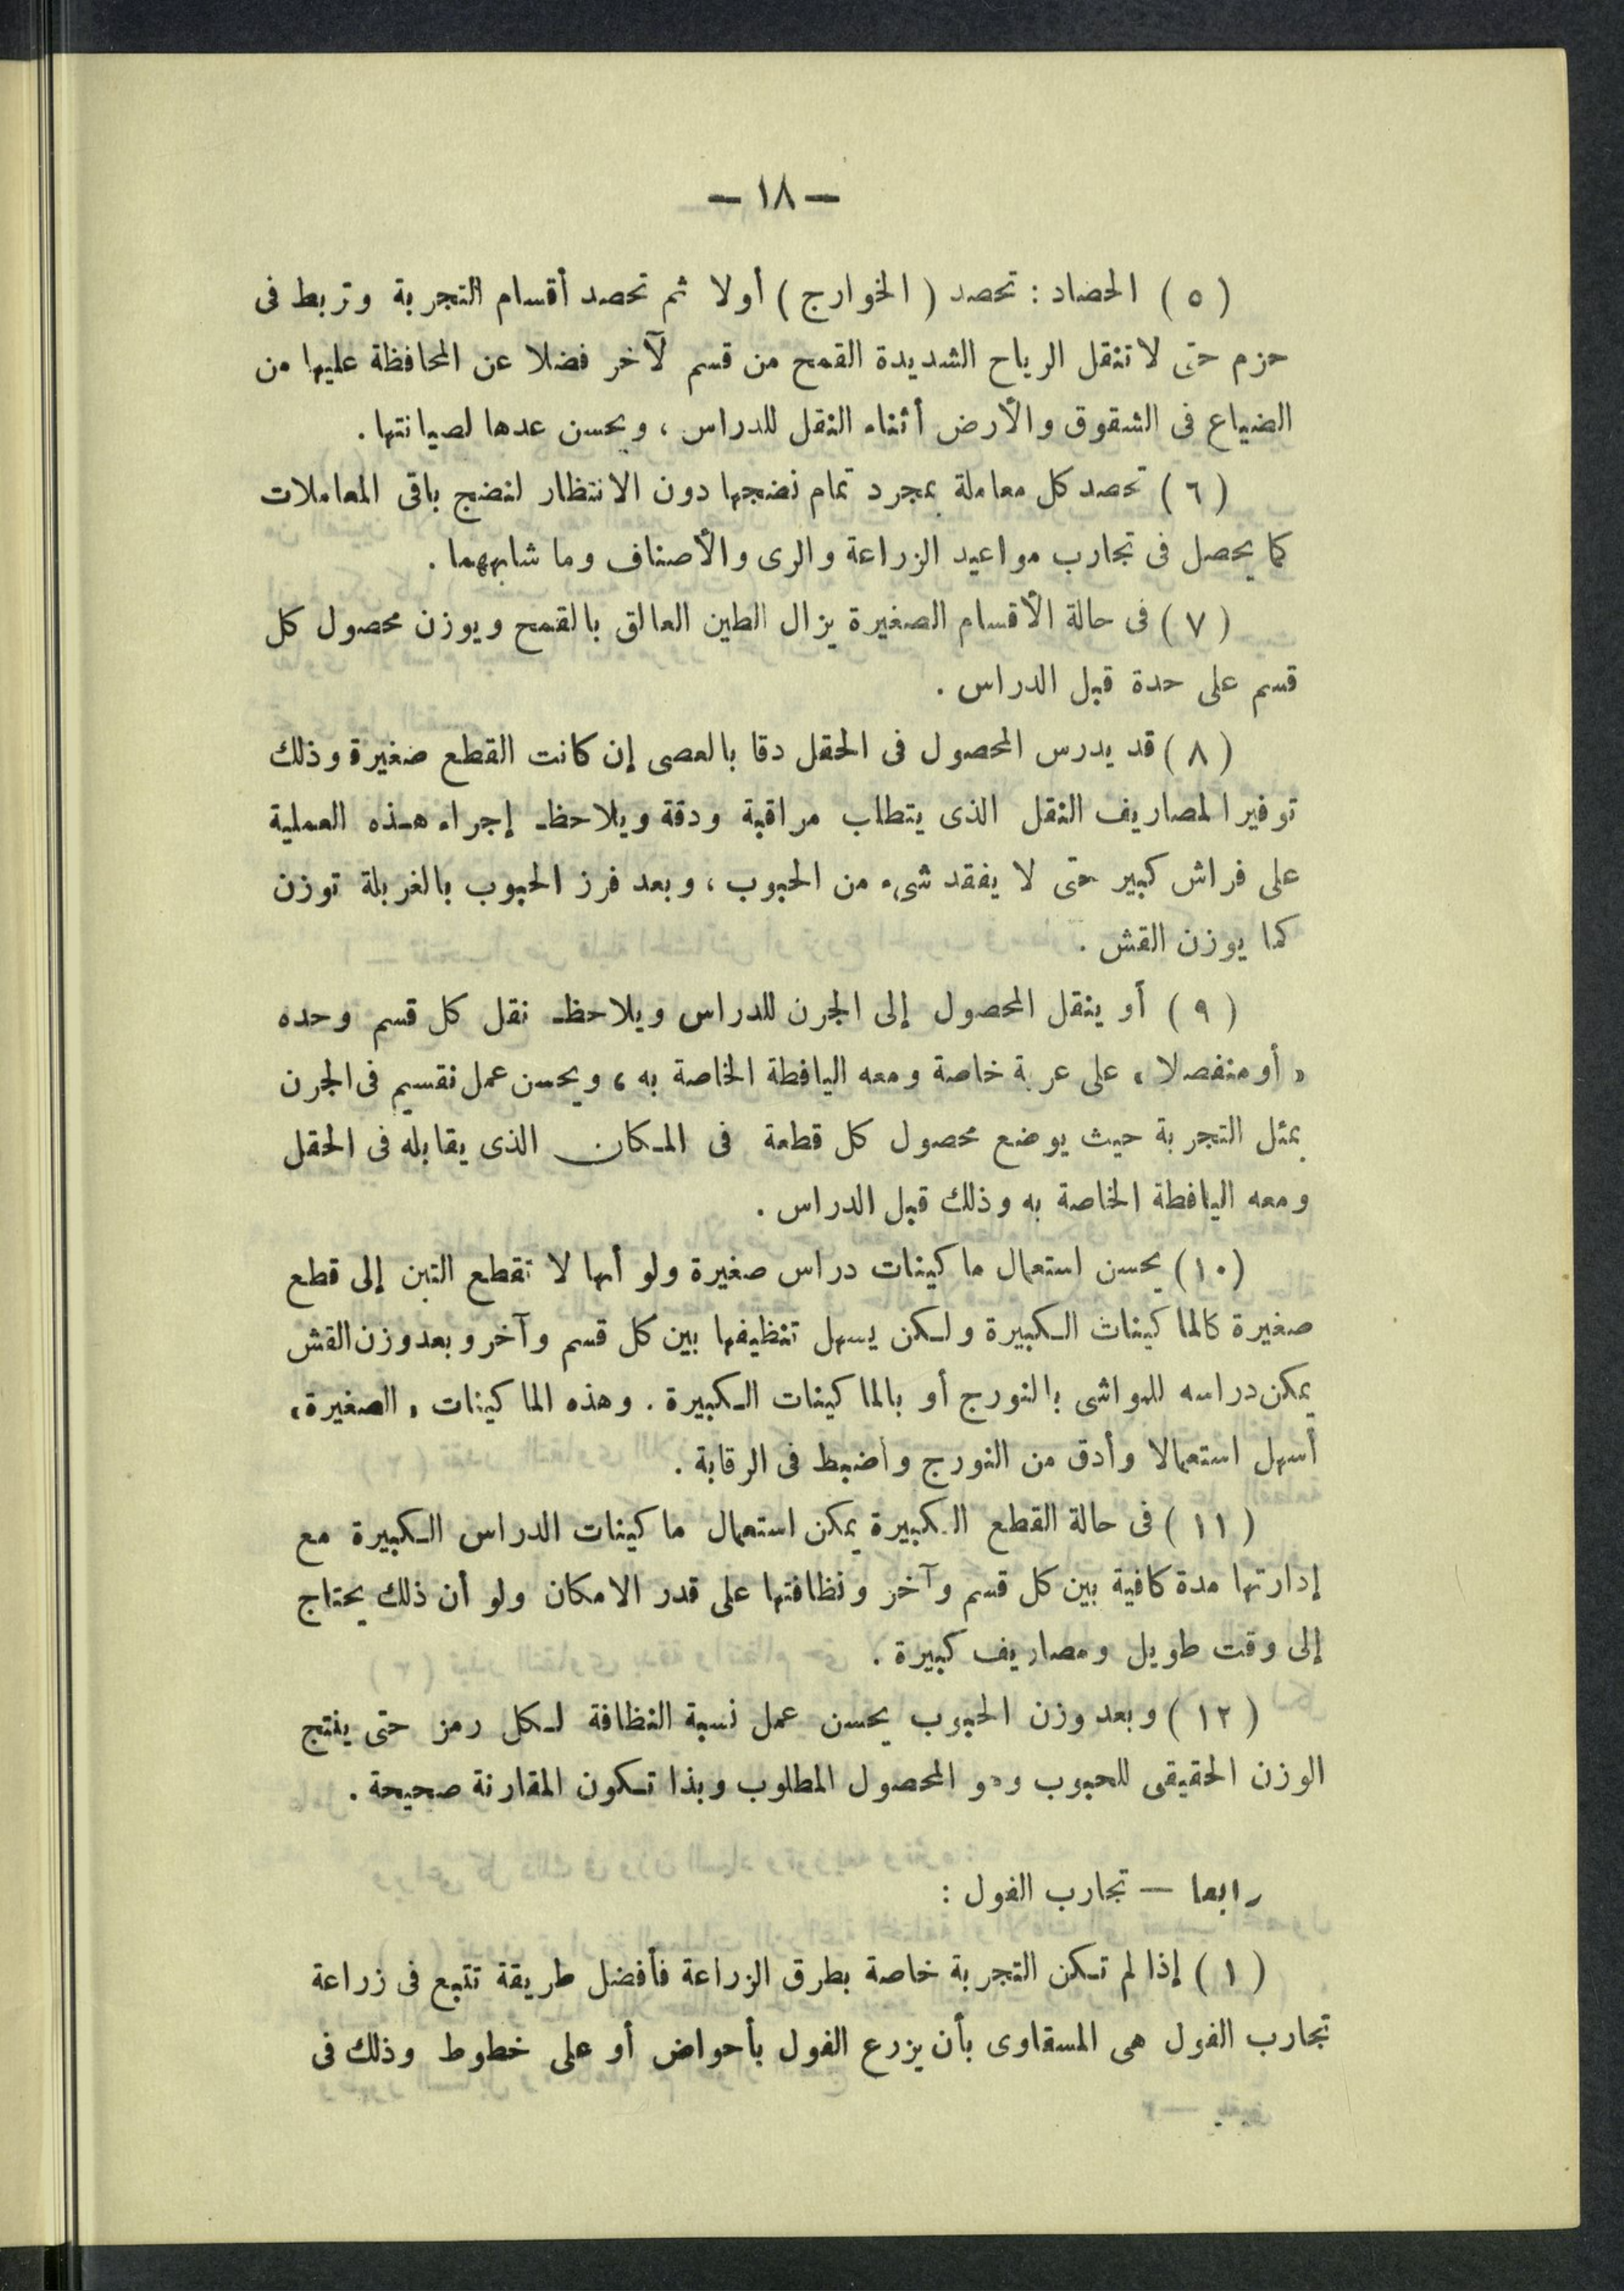 — ١٨ —
( ٥ ) الحضاد : تحصد ( الخوارج ) أولا ثم تحصد أقسام التجربة وتربط فى
حزم حتى لا تنقل الرياح الشديدة القمح من قسم لآخر فضلا عن المحافظة عليها من
الضياع فى الشقوق والأرض أثناء النقل للدراس ، ويحسن عدها لصيانتها .
( ٦ ) تحصد كل معاملة بمجرد تمام نضجها دون الانتظار لنضج باقى المعاملات
كما يحصل فى تجارب مواعيد الزراعة والرى والأصناف وما شابههما .
( ٧ ) فى حالة الأقسام الصغيرة يزال الطين العالق بالقمح ويوزن محصول كل
قسم على حدة قبل الدراس .
( ٨ ) قد يدرس المحصول فى الحقل دقا بالعصى إن كانت القطع صغيرة وذلك
توفيرا لمصاريف النقل الذى يتطلب مراقبة ودقة ويلاحظ إجراء هذه العملية
على فراش كبير حتى لا يفقد شىء من الحبوب ، وبعد فرز الحبوب بالغربلة توزن
كما يوزن القش .
( ٩ ) أو ينقل المحصول إلى الجرن للدراس ويلاحظ نقل كل قسم وحده
« أو منفصلا » على عربة خاصة ومعه اليافطة الخاصة به ، ويحسن عمل تقسيم فى الجرن
بمثل التجربة حيث يوضع محصول كل قطعة فى المكان الذى يقابله فى الحقل
ومعه اليافطة الخاصة به وذلك قبل الدراس .
( ١٠ ) يحسن استعمال ماكينات دراس صغيرة ولو أنها لا تقطع التبن إلى قطع
صغيرة كالماكينات الكبيرة ولكن يسهل تنظيفها بين كل قسم وآخر وبعد وزن القش
يمكن دراسه للمواشى بالنورج أو بالماكينات الكبيرة . وهذه الماكينات « الصغيرة »
أسهل استعمالا وأدق من النورج وأضبط فى الرقابة .
( ١١ ) فى حالة القطع الكبيرة يمكن استعمال ماكينات الدراس الكبيرة مع
إدارتها مدة كافية بين كل قسم وآخر ونظافتها على قدر الامكان ولو أن ذلك يحتاج
إلى وقت طويل ومصاريف كبيرة .
( ١٢ ) وبعد وزن الحبوب يحسن عمل نسبة النظافة لكل رمز حتى ينتج
الوزن الحقيقى للحبوب وهو المحصول المطلوب وبذا تكون المقارنة صحيحة .
رابعا — تجارب الفول :
( ١ ) إذا لم تكن التجربة خاصة بطرق الزراعة فأفضل طريقة تتبع فى زراعة
تجارب الفول هى المسقاوى بأن يزرع الفول بأحواض أو على خطوط وذلك فى